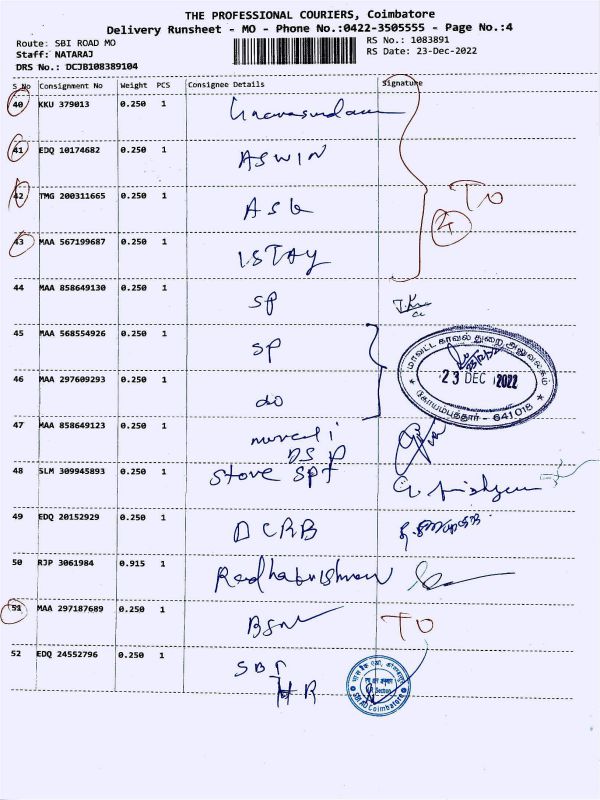 THE PROFESSIONAL COURIERS, Coimbatore
Delivery Runsheet - MO - Phone No.:0422-3505555 - Page No.:4
Route: SBI ROAD MO
RS No.: 1083891
Staff: NATARAJ
RS Date: 23-Dec-2022
DRS No.: DCJB108389104
S No Consignment No Weight PCS Consignee Details Signature
40 KKU 379013 0.250 1
41 EDQ 10174682 0.250 1 ASWIN
42 TMG 200311665 0.250 1 TO
4
43 MAA 567199687 0.250 1 ISTAY
44 MAA 858649130 0.250 1 SP
45 MAA 568554926 0.250 1 SP
மாவட்ட காவல் துறை அலுவலகம்
23 DEC 2022
கோயம்புத்தூர் - 641 018
46 MAA 297609293 0.250 1 do
47 MAA 858649123 0.250 1
DSP
48 SLM 309945893 0.250 1 Store
49 EDQ 20152929 0.250 1 DCRB
50 RJP 3061984 0.915 1 Radhakrishnan
51 MAA 297187689 0.250 1 TO
52 EDQ 24552796 0.250 1 SBI
HR
HR Section
Coimbatore